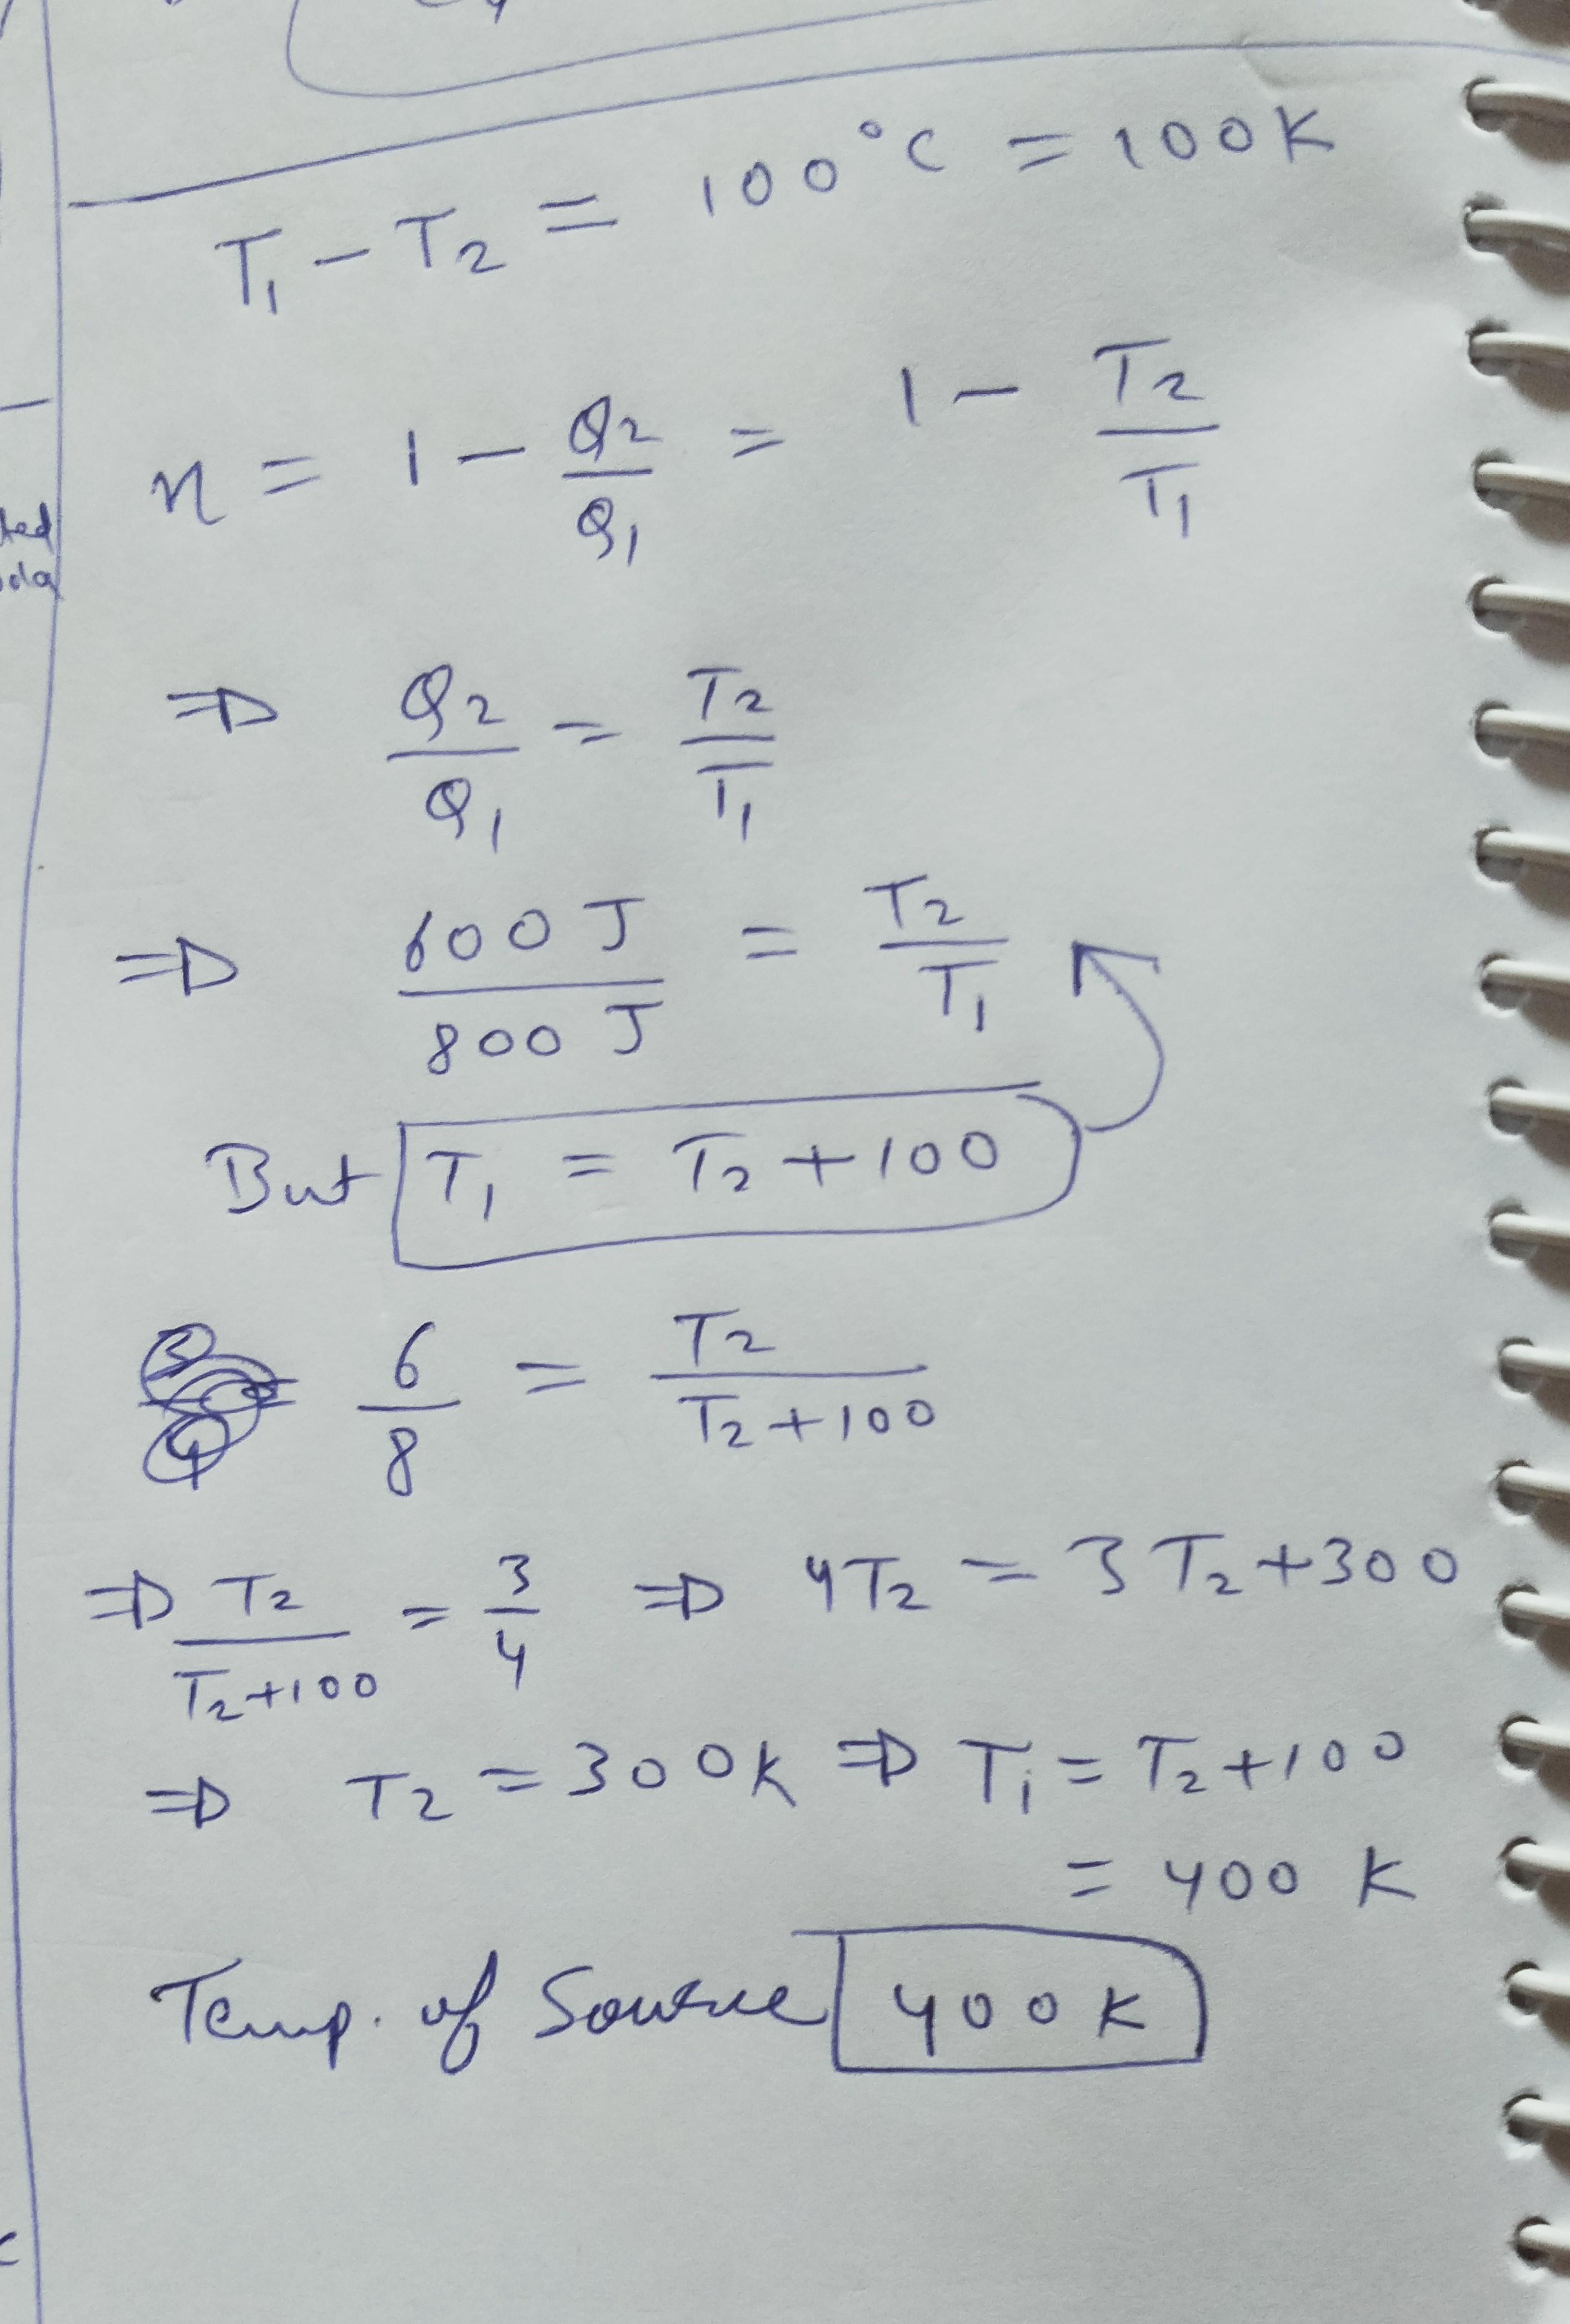 T₁ - T₂ = 100°C = 100K
η = 1 - Q₂/Q₁ = 1 - T₂/T₁
⇒ Q₂/Q₁ = T₂/T₁
⇒ 600 J/800 J = T₂/T₁
But T₁ = T₂ + 100
6/8 = T₂/(T₂ + 100)
⇒ T₂/(T₂+100) = 3/4 ⇒ 4T₂ = 3T₂ + 300
⇒ T₂ = 300K ⇒ T₁ = T₂ + 100
= 400 K
Temp. of Source 400K